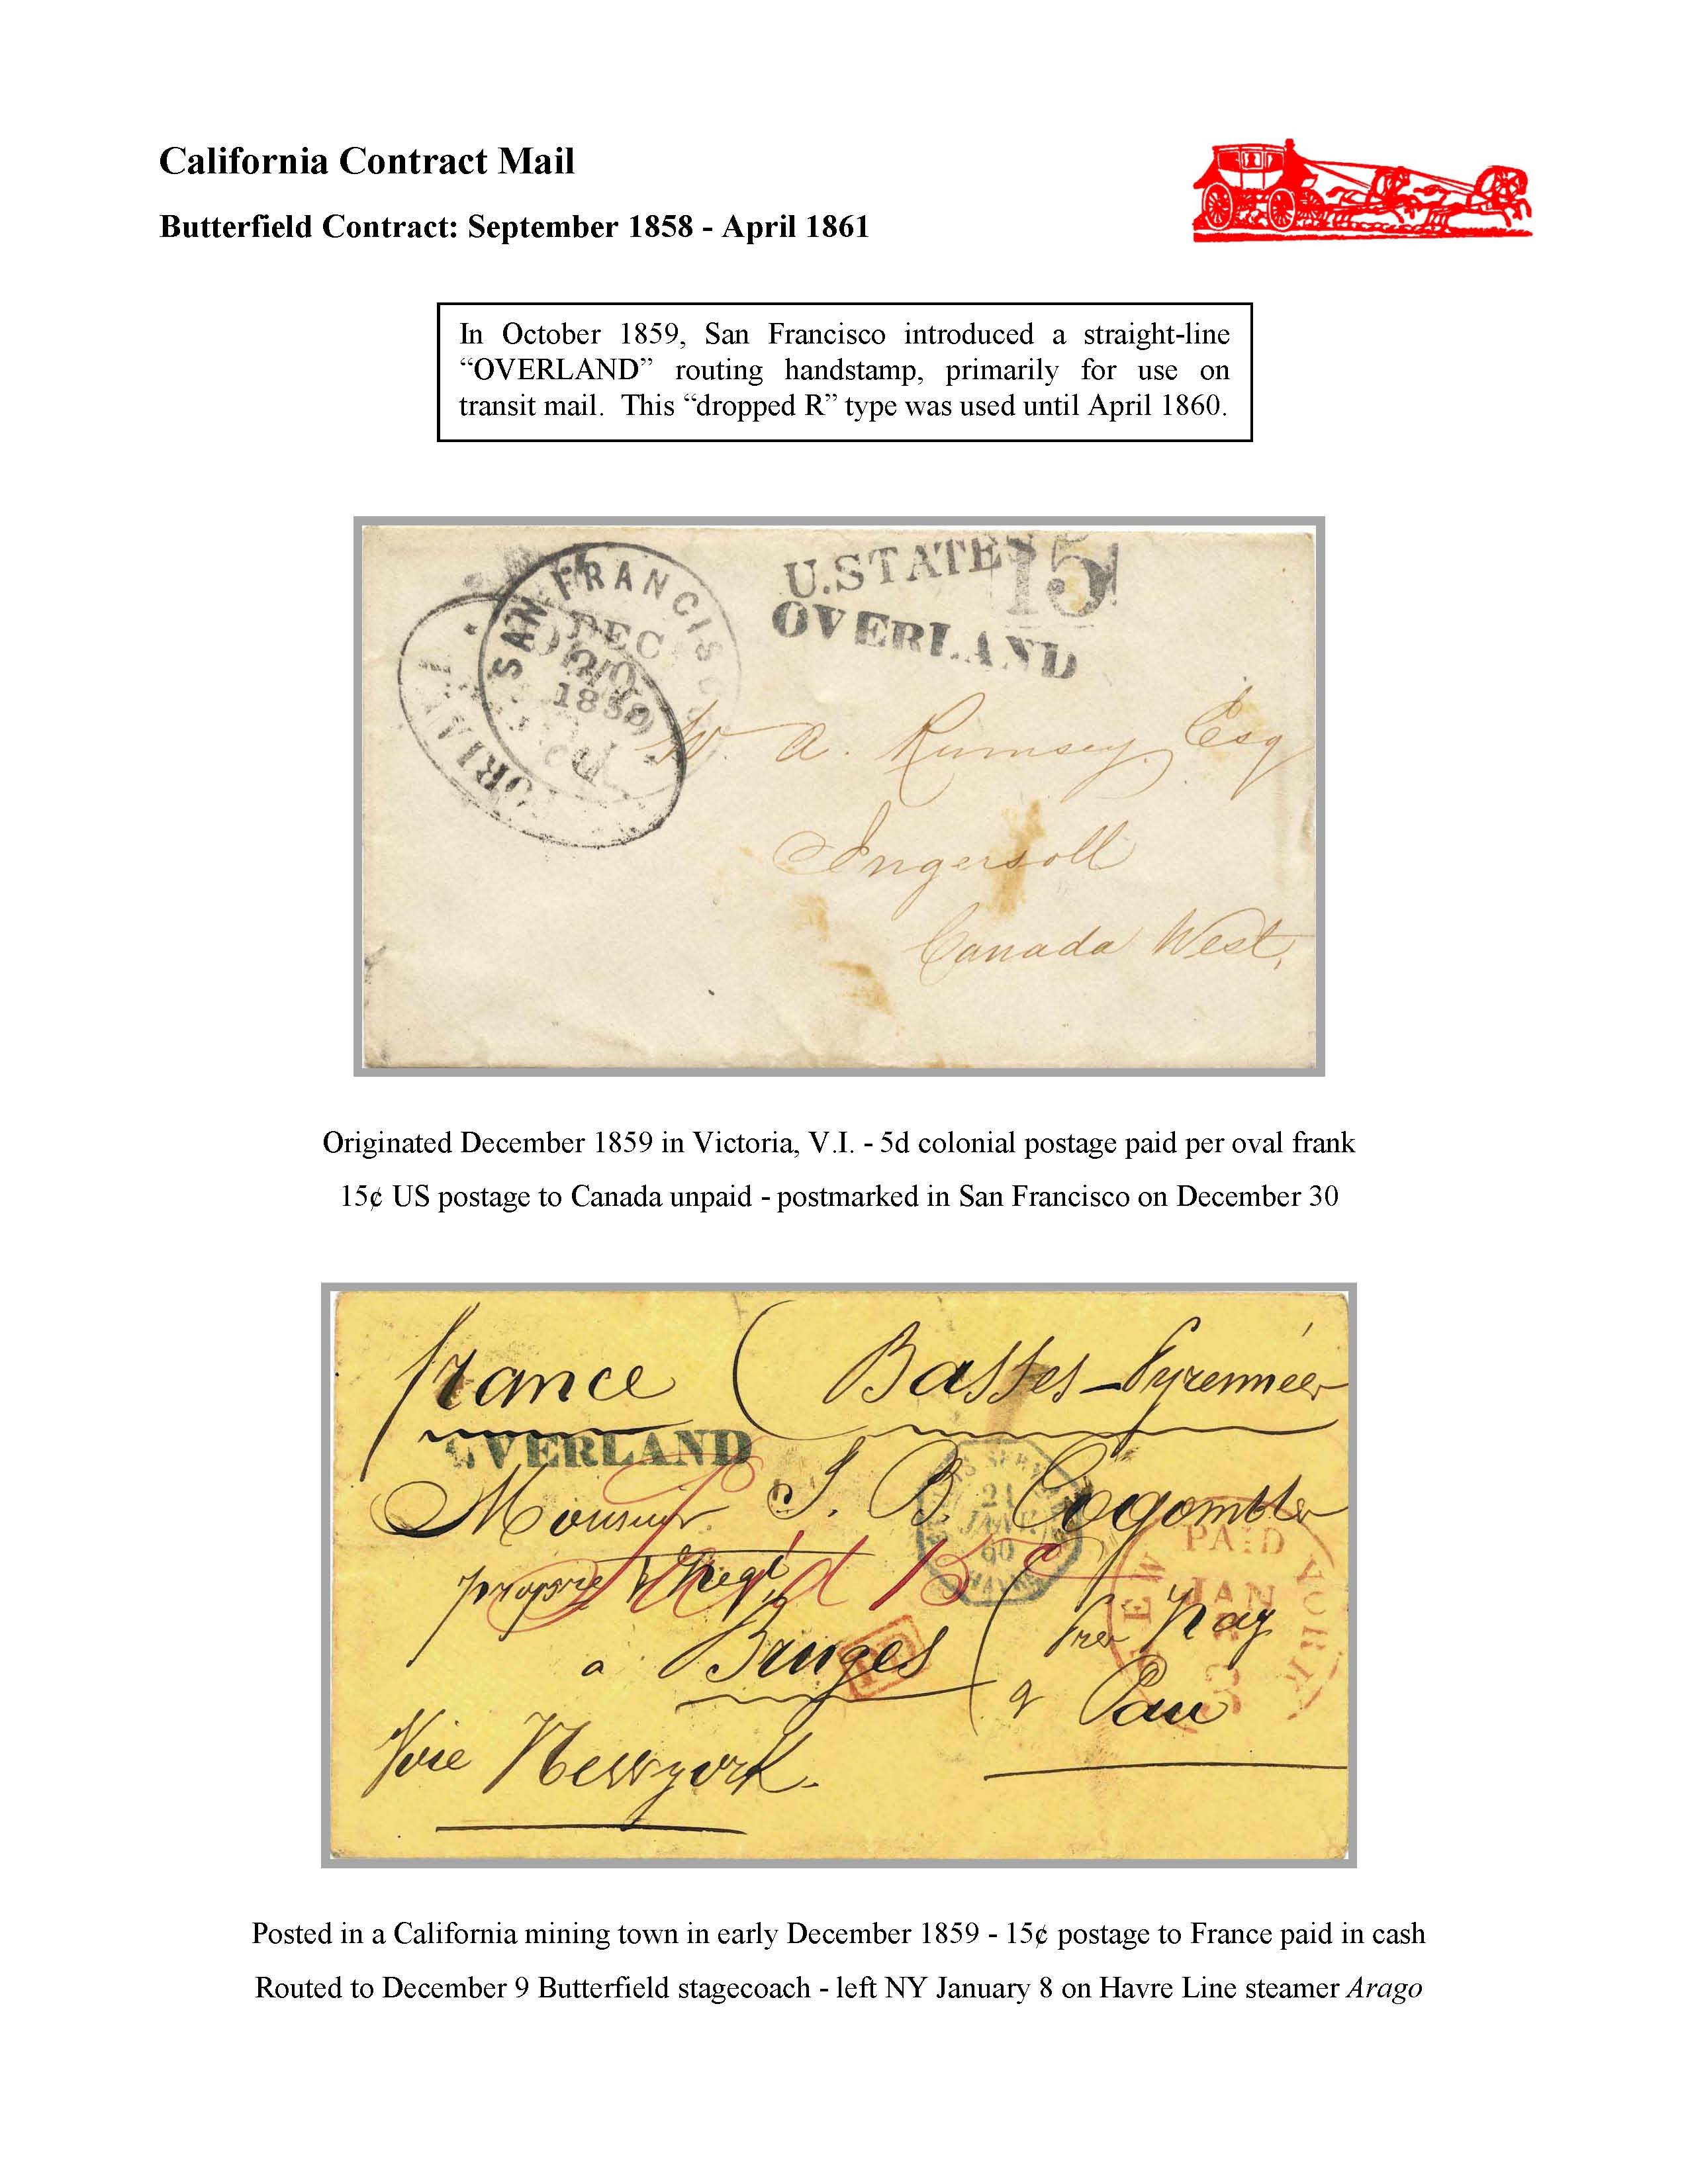 California Contract Mail
Butterfield Contract: September 1858 - April 1861
In October 1859, San Francisco introduced a straight-line
“OVERLAND” routing handstamp, primarily for use on
transit mail. This “dropped R” type was used until April 1860.
U.STATES 15
OVERLAND
SAN FRANCISCO
DEC
1859
W. A. Rumsey Esq
Ingersoll
Canada West.
Originated December 1859 in Victoria, V.I. - 5d colonial postage paid per oval frank
15¢ US postage to Canada unpaid - postmarked in San Francisco on December 30
france ( Basses-Pyrennées
OVERLAND
Monsieur J. B.
21
JANV.
60
HAVRE
Paid 15
NEW YORK
PAID
JAN
a Bruges
PD
Nay
Pau
Voie Newyork.
Posted in a California mining town in early December 1859 - 15¢ postage to France paid in cash
Routed to December 9 Butterfield stagecoach - left NY January 8 on Havre Line steamer Arago